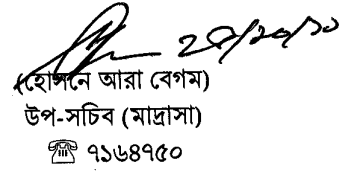 ২৫/১০/১০
(হোসনে আরা বেগম)
উপ-সচিব (মাদ্রাসা)
☎ ৭১৬৪৭৫০